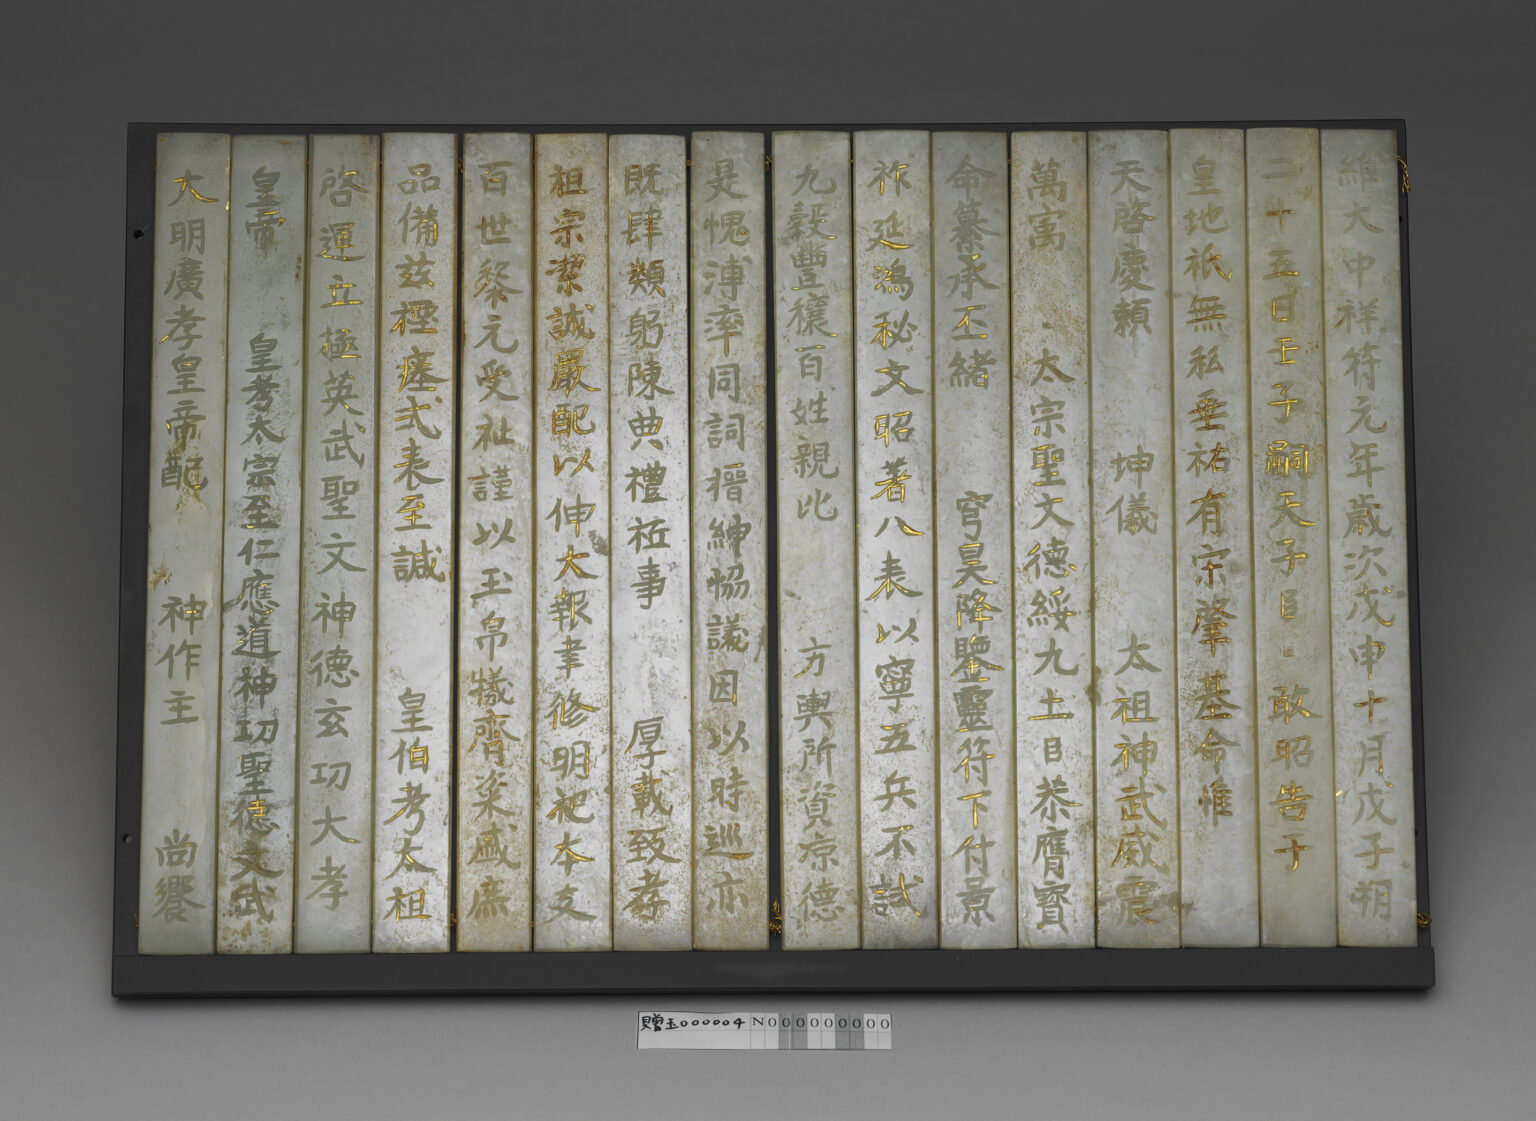 維大中祥符元年歲次戊申十月戊子朔
二十五日壬子嗣天子臣 敢昭告于
皇地祇無私垂祐有宋肇基命惟
天啓慶賴 坤儀 太祖神武威震
萬㝢 太宗聖文德綏九土臣恭膺寶
命纂承丕緒 穹昊降鑒靈符下付景
祚延鴻秘文昭著八表以寧五兵不試
九穀豐穰百姓親比 方輿所資凉德
是愧溥率同詞搢紳恊議因以時巡亦
既肆類躬陳典禮祗事 厚載致孝
祖宗潔誠嚴配以伸大報聿修明祀本支
百世黎元受祉謹以玉帛犧齊粢盛庶
品備茲極瘞式表至諴 皇伯考太祖
啓運立極英武聖文神德玄功大孝
皇帝 皇考太宗至仁應道神功聖德文武
大明廣孝皇帝配 神作主 尚饗
贈玉000004 N000000000